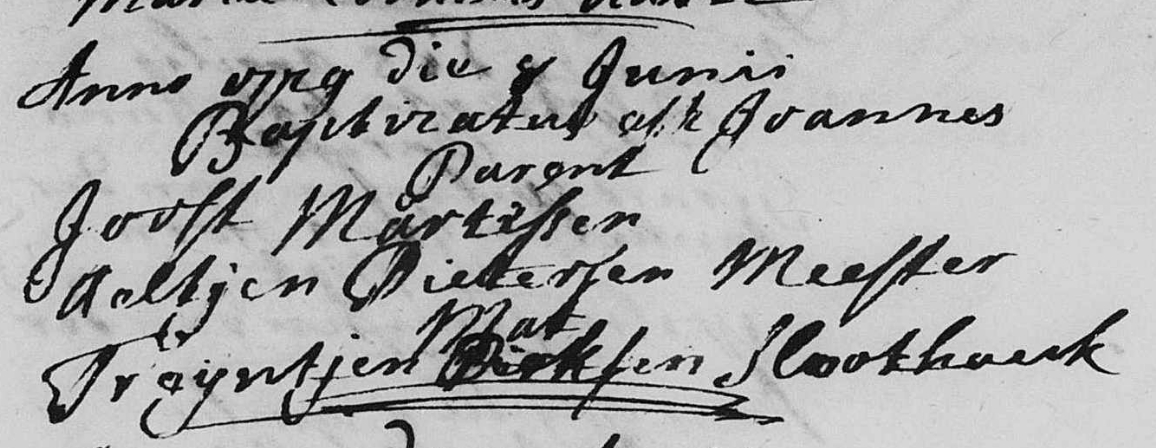 Anno 1719 die 9 Junii
Baptizatus est Joannes
Parent
Joost Martissen
Aeltjen Pietersen Meester
Mat
Treyntjen Dirksen Sloothaeck